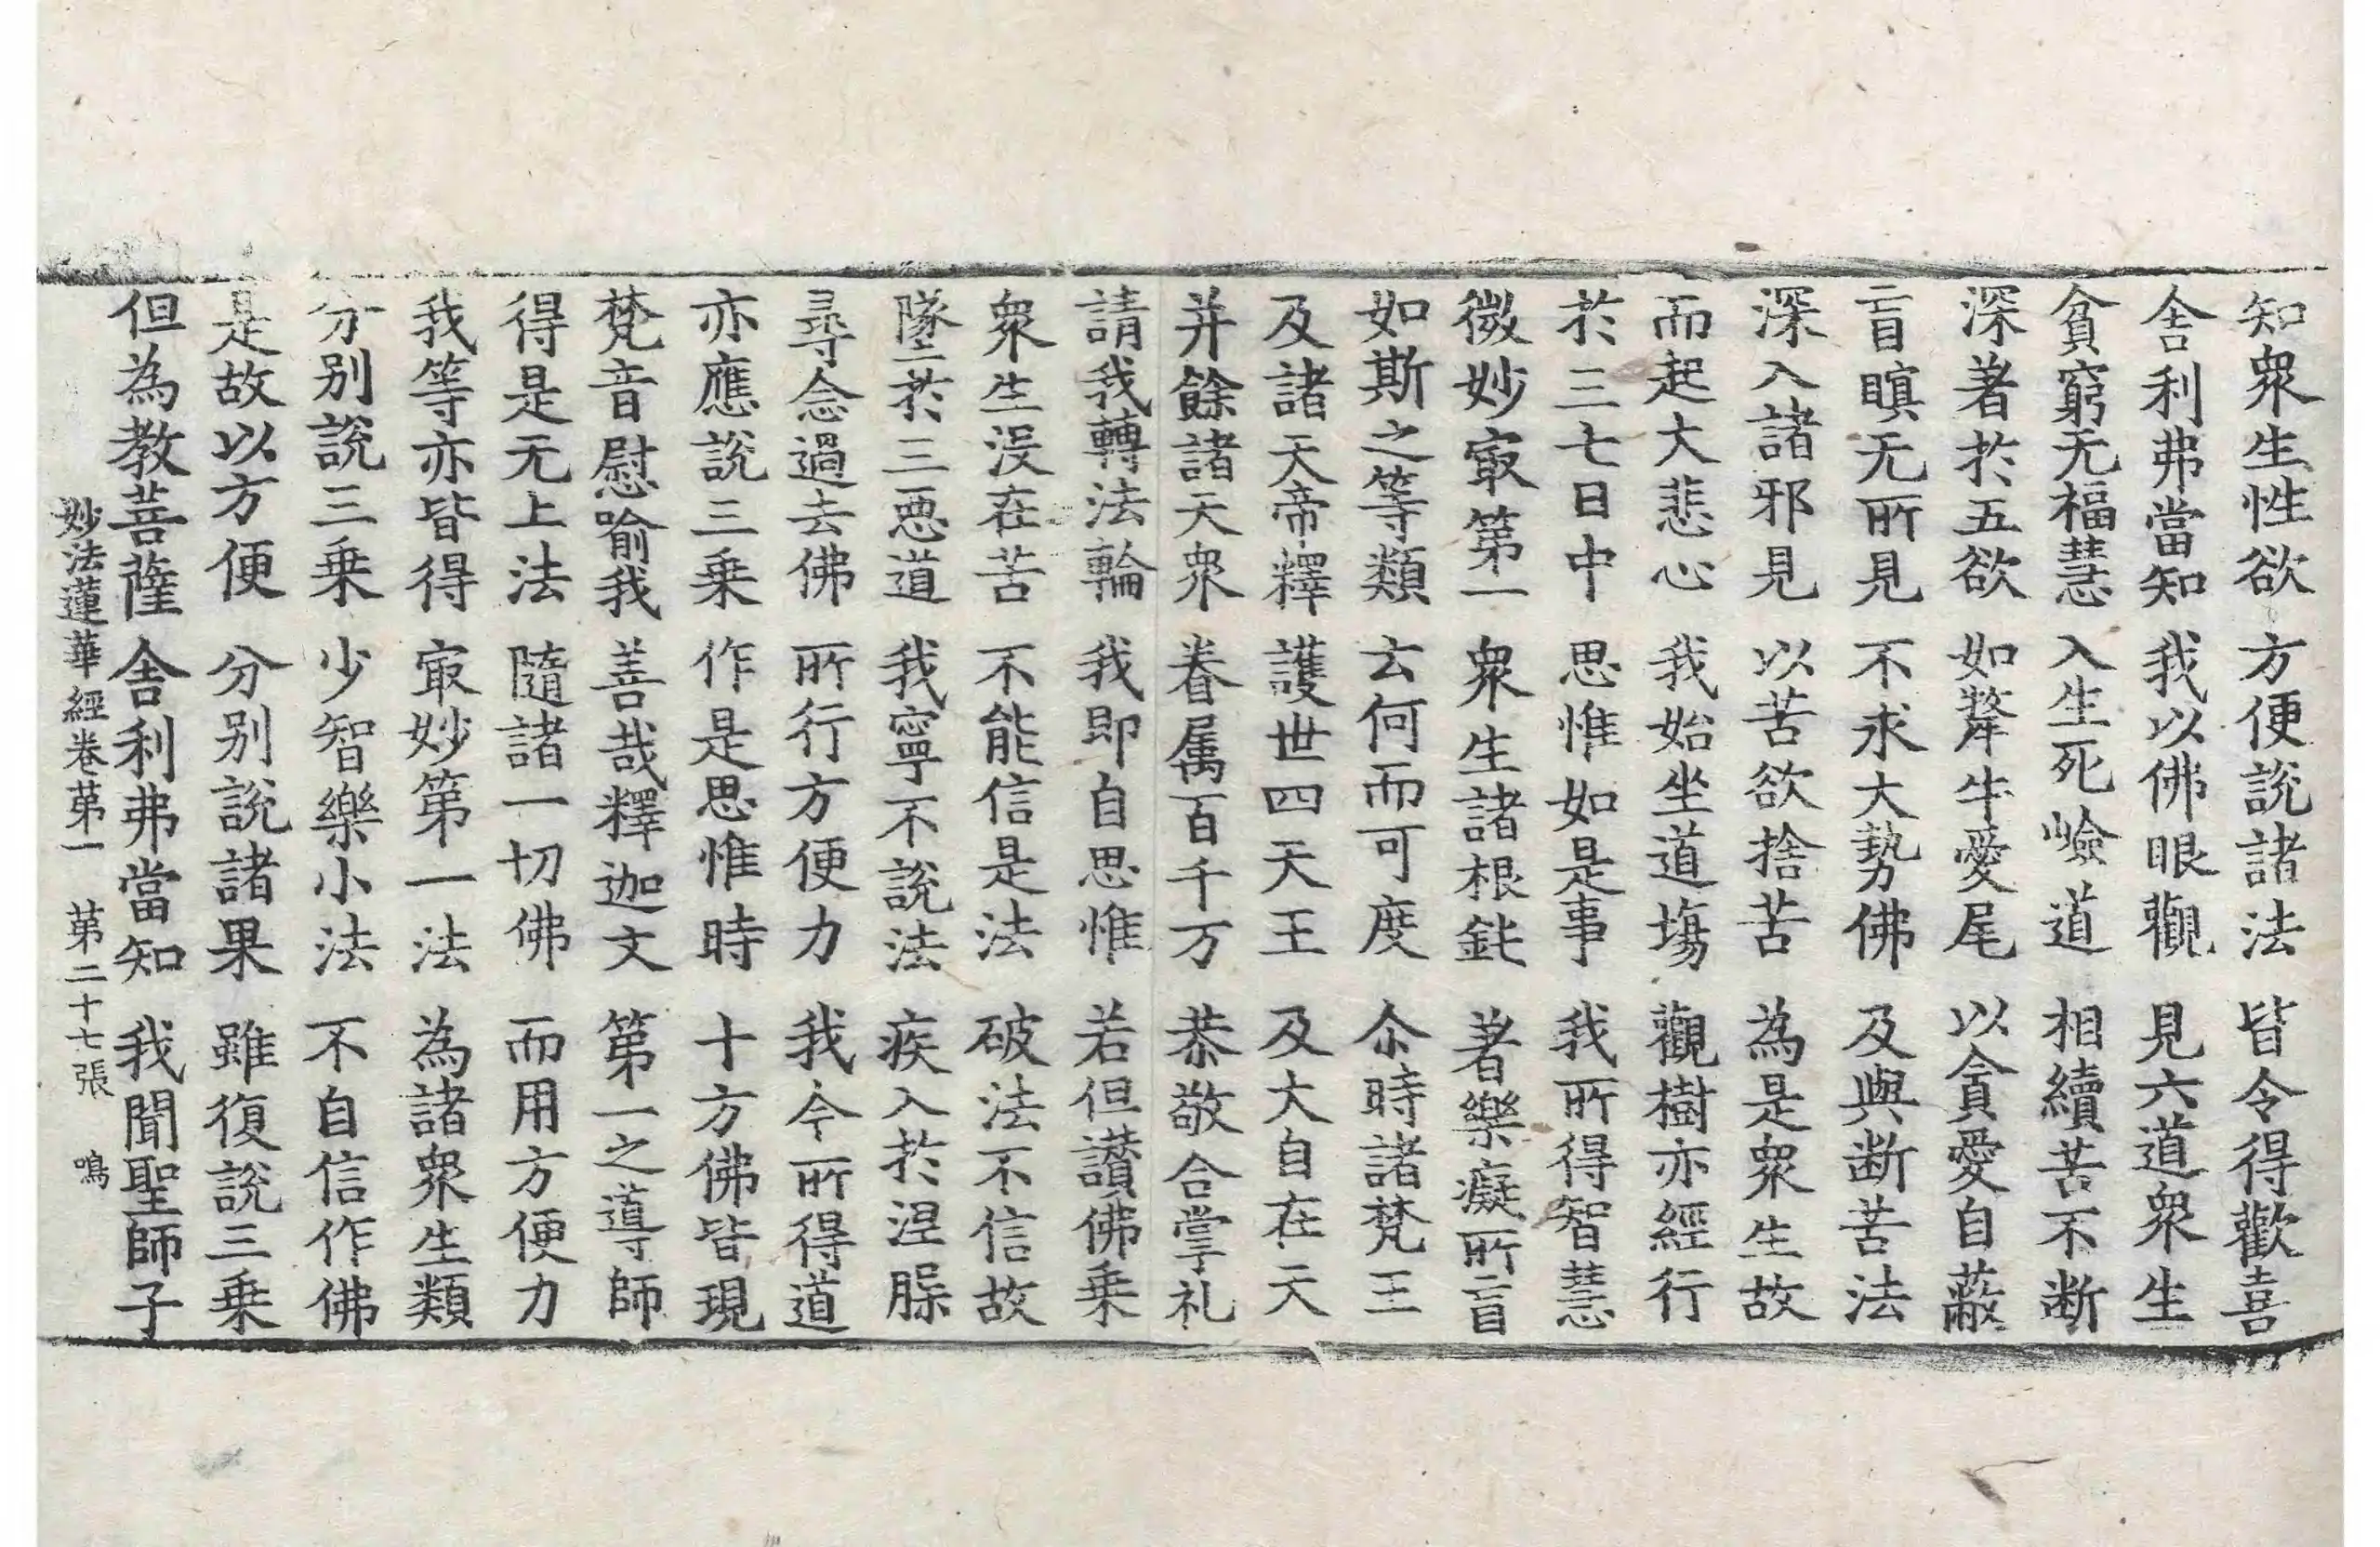 知衆生性欲 方便說諸法 皆令得歡喜
舍利弗當知 我以佛眼觀 見六道衆生
貧窮无福慧 入生死嶮道 相續苦不断
深著於五欲 如犛牛愛尾 以貪愛自蔽
盲瞑无所見 不求大勢佛 及與断苦法
深入諸邪見 以苦欲捨苦 為是衆生故
而起大悲心 我始坐道塲 觀樹亦經行
於三七日中 思惟如是事 我所得智慧
微妙㝡第一 衆生諸根鈍 著樂癡所盲
如斯之等類 云何而可度 尒時諸梵王
及諸天帝釋 護世四天王 及大自在天
并餘諸天衆 眷属百千万 恭敬合掌礼
請我轉法輪 我即自思惟 若但讃佛乗
衆生沒在苦 不能信是法 破法不信故
墜於三惡道 我寧不說法 疾入於涅槃
尋念過去佛 所行方便力 我今所得道
亦應說三乗 作是思惟時 十方佛皆現
梵音慰喻我 善哉釋迦文 第一之導師
得是无上法 隨諸一切佛 而用方便力
我等亦皆得 㝡妙第一法 為諸衆生類
分別說三乗 少智樂小法 不自信作佛
是故以方便 分別說諸果 雖復說三乗
但為教菩薩 舍利弗當知 我聞聖師子
妙法蓮華經卷第一 第二十七張 鳴